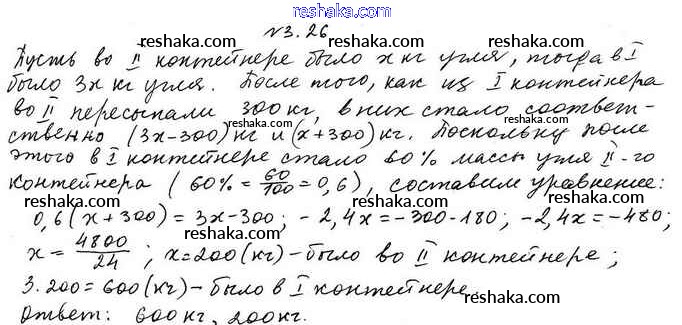 reshaka.com
№3.26
reshaka.com reshaka.com
Пусть во II контейнере было x кг угля, тогда в I
было 3x кг угля. После того, как из I контейнера
reshaka.com reshaka.com
во II пересыпали 300 кг, в них стало соответ-
ственно (3x-300) кг и (x+300) кг. Поскольку после
reshaka.com reshaka.com
этого в I контейнере стало 60% массы угля II-го
контейнера (60% = 60/100 = 0,6), составим уравнение:
reshaka.com reshaka.com
0,6(x+300) = 3x-300; -2,4x = -300-180; -2,4x = -480;
x = 4800/24; x = 200 (кг) - было во II контейнере;
reshaka.com reshaka.com
3·200 = 600 (кг) - было в I контейнере.
reshaka.com reshaka.com
Ответ: 600 кг, 200 кг.